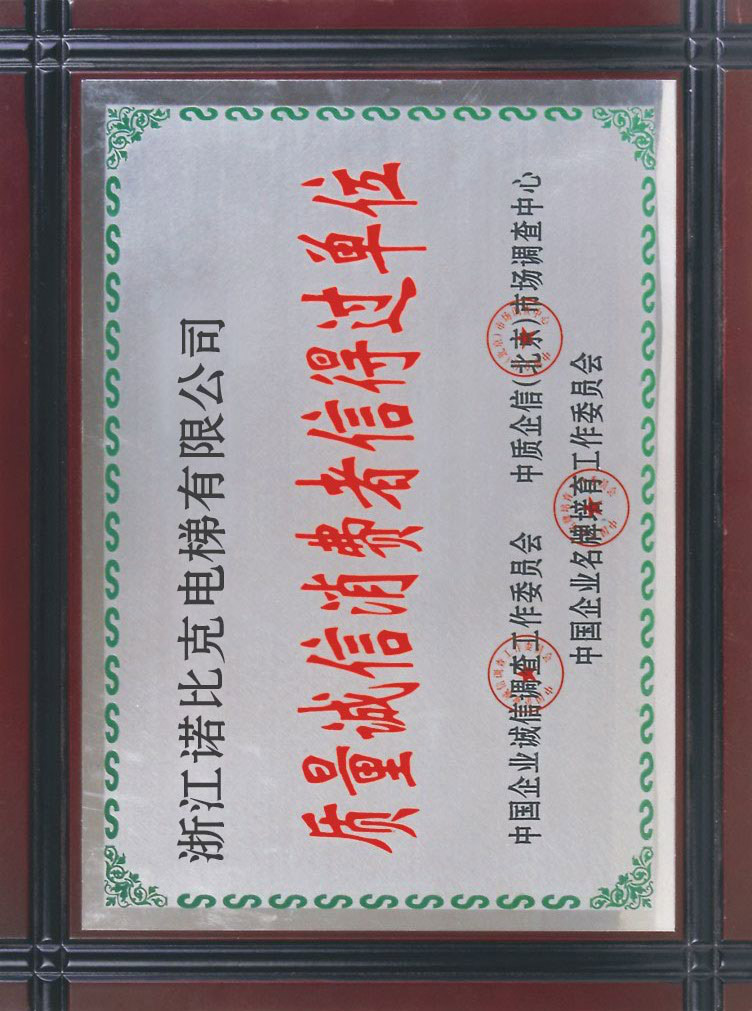 浙江诺比克电梯有限公司
质量诚信消费者信得过单位
中国企业诚信调查工作委员会 中质企信(北京)市场调查中心
中国企业名牌培育工作委员会